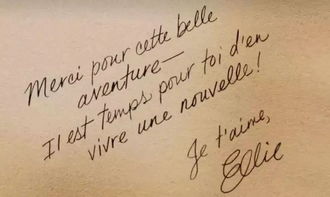 Merci pour cette belle
aventure—
Il est temps pour toi d'en
vivre une nouvelle!
Je t'aime,
Ellie